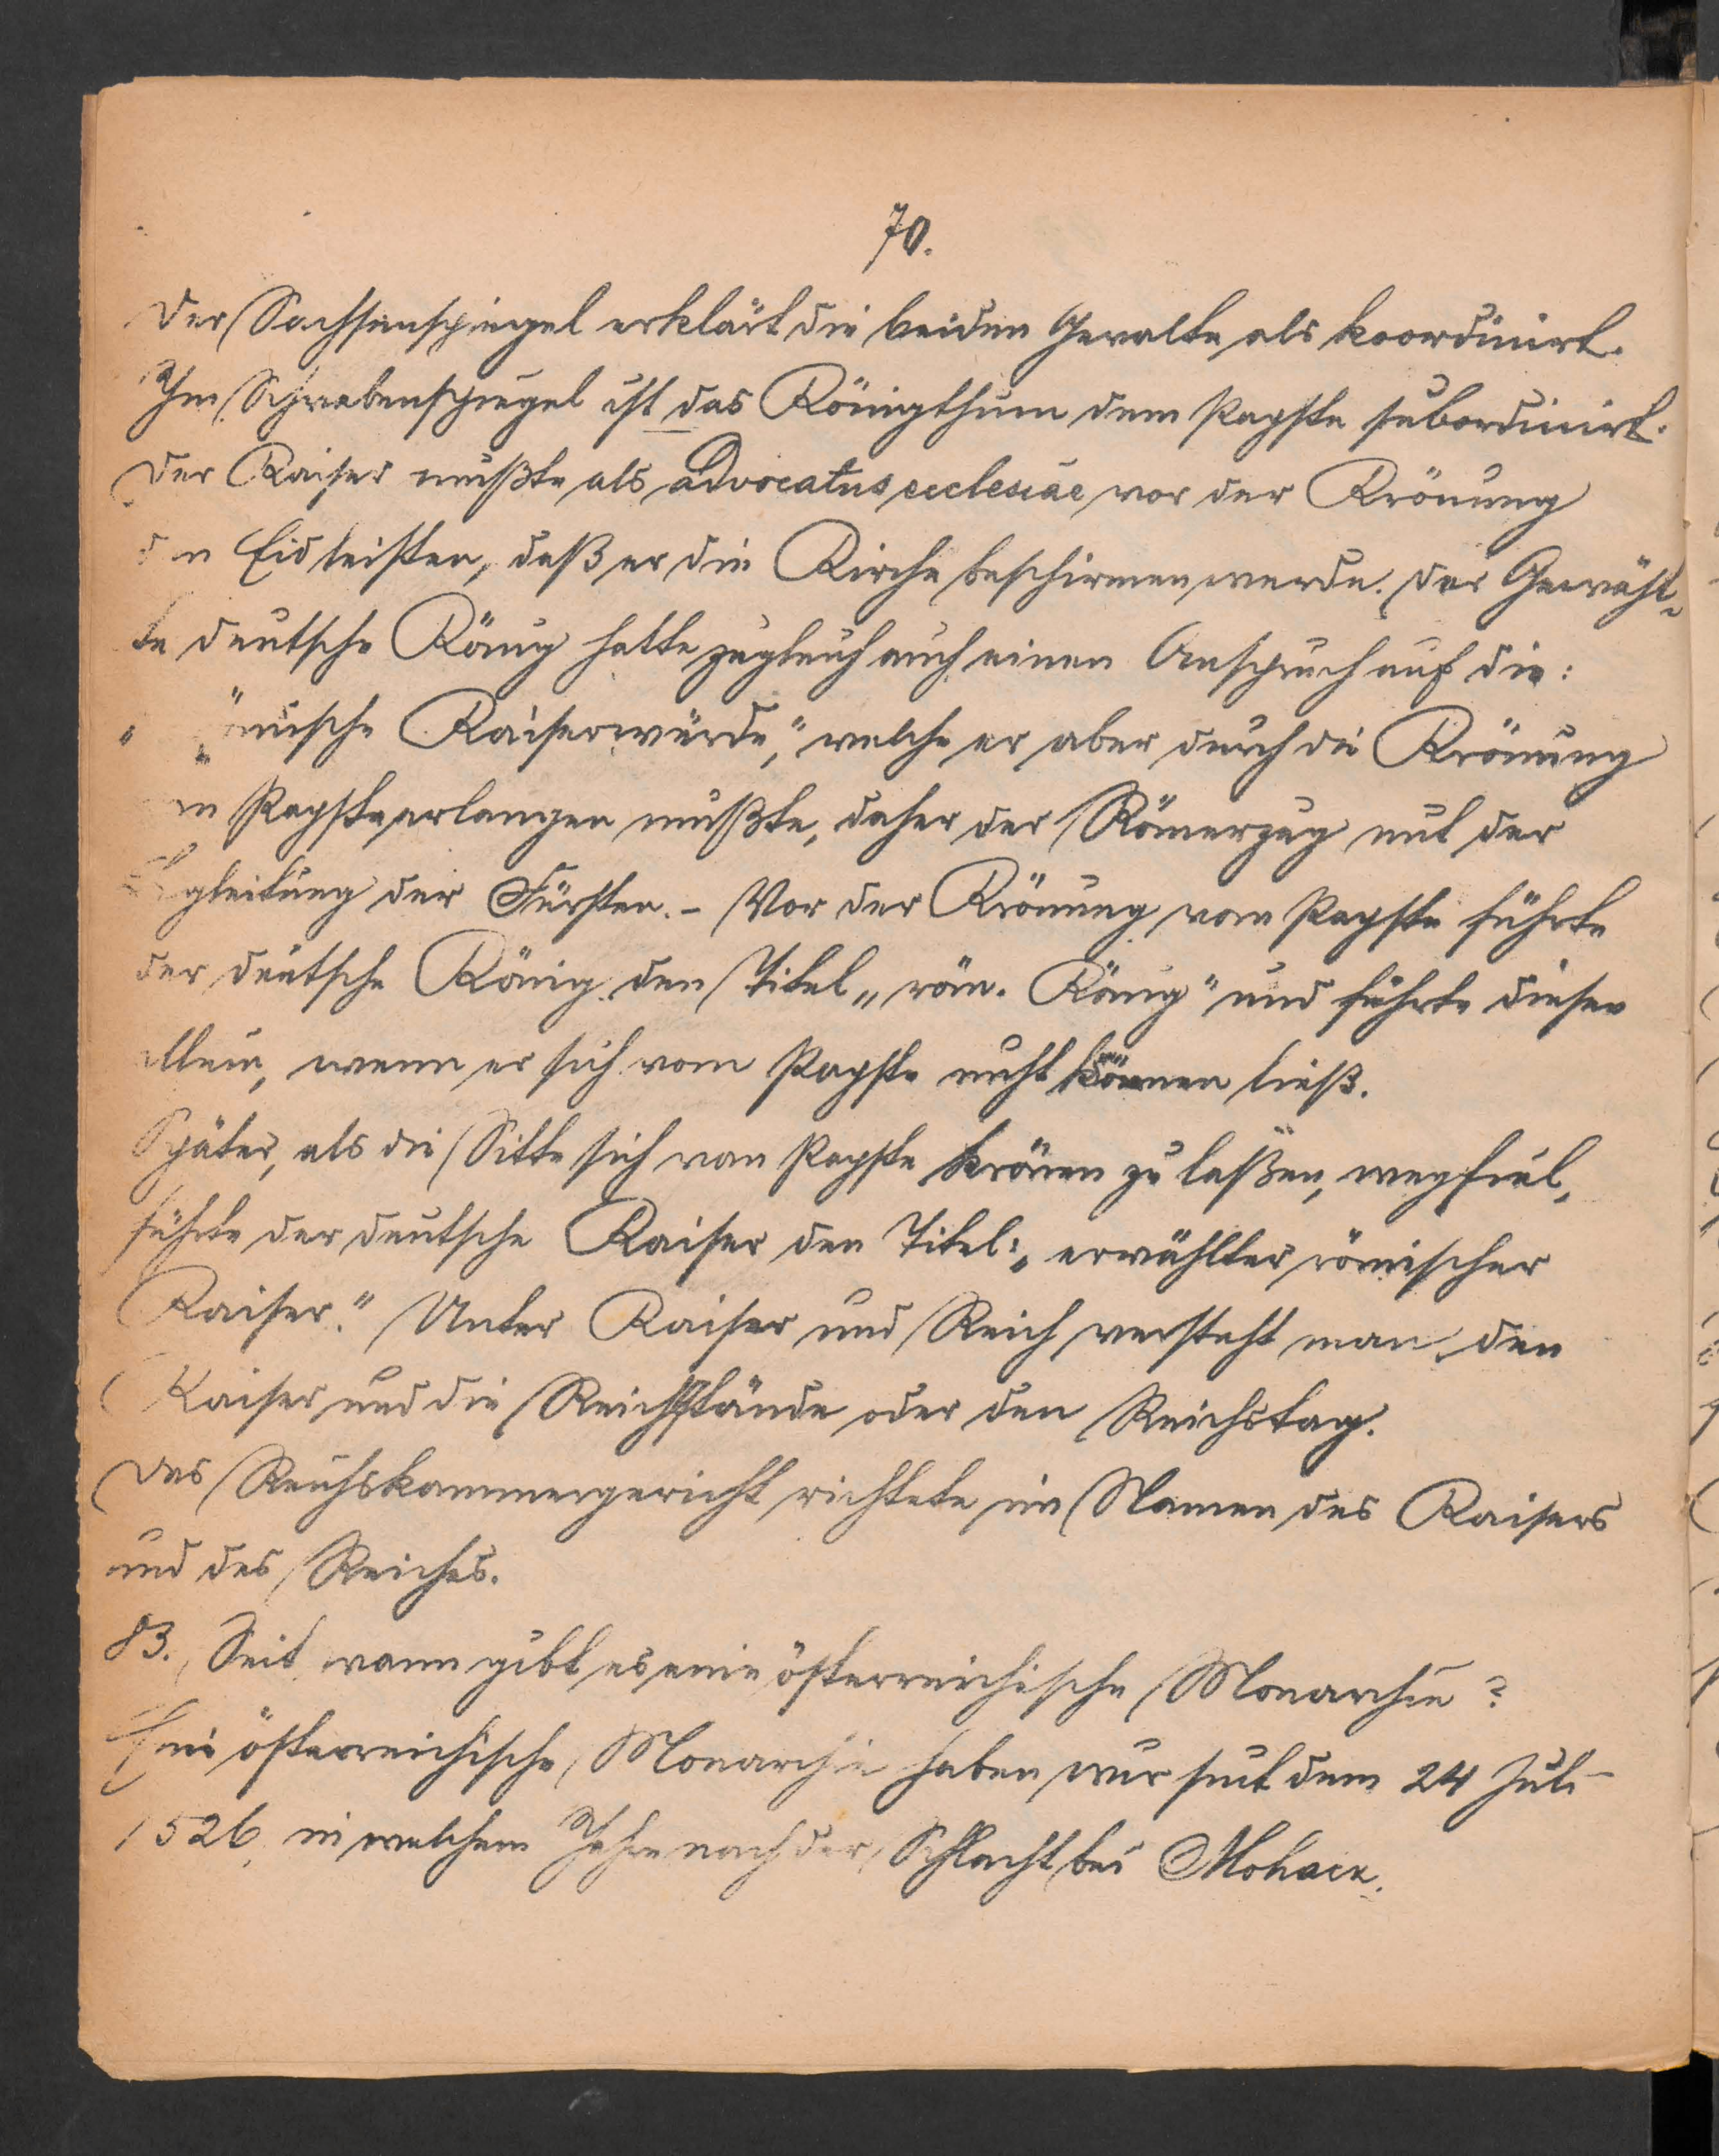 70.
Der Sachsenspiegel erklärt die beiden Gewalten als koordinirt.
Im Schwabenspiegel ist das Königthum dem Papste subordinirt.
Der Kaiser mußte als advocatus ecclesiae vor der Krönung
den Eid leisten, daß er die Kirche beschirmen werde. Der Gewähl-
te deutsche König hatte zugleich auch einen Anspruch auf die:
„römische Kaiserwürde,“ welche er aber durch die Krönung
Papste erlangen mußte, daher der Römerzug mit der
Begleitung der Fürsten. – Vor der Krönung vom Papste führte
der deutsche König den Titel „röm. König“ und führte diesen
allein, wenn er sich vom Papste nicht krönen ließ.
Später, als die Sitte sich vom Papste krönen zu laßen, wegfiel,
führte der deutsche Kaiser den Titel: „erwählter römischer
Kaiser.“ Unter Kaiser und Reich versteht man den
Kaiser und die Reichsstände oder den Reichstag.
Das Reichskammergericht richtete im Namen des Kaisers
und des Reiches.
83. Seit wann gibt es eine österreichische Monarchie?
Eine österreichische Monarchie haben wir seit dem 24 Juli
1526, in welchem Jahre nach der Schlacht bei Mohacz.